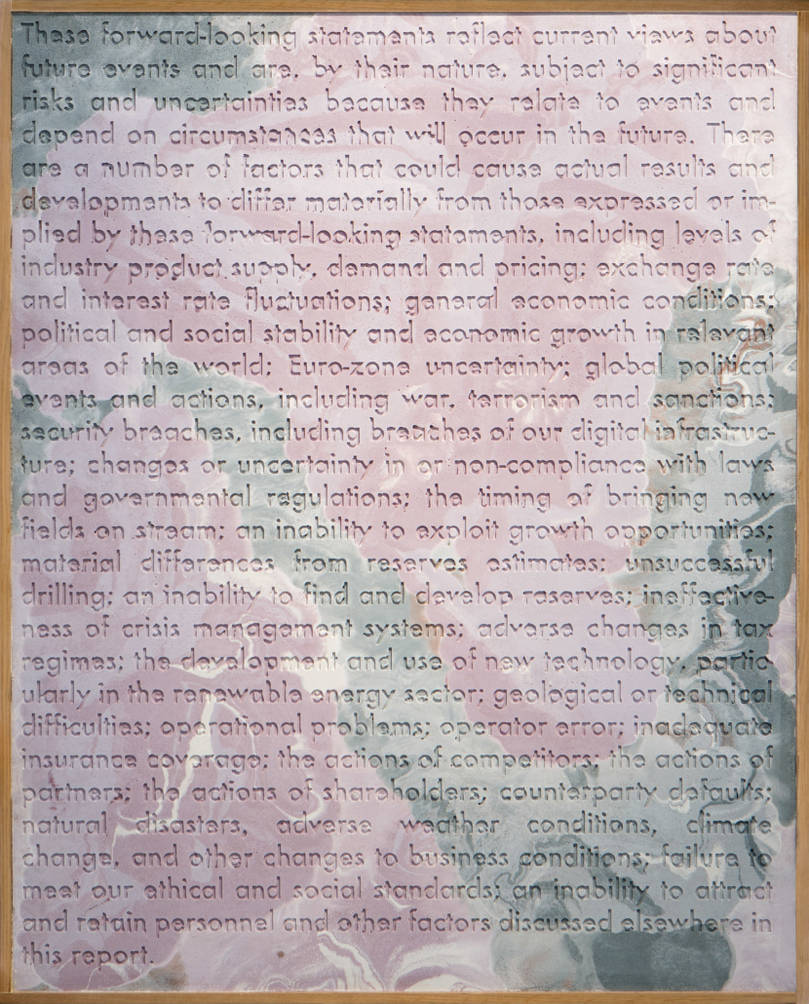 These forward-looking statements reflect current views about
future events and are, by their nature, subject to significant
risks and uncertainties because they relate to events and
depend on circumstances that will occur in the future. There
are a number of factors that could cause actual results and
developments to differ materially from those expressed or im-
plied by these forward-looking statements, including levels of
industry product supply, demand and pricing; exchange rate
and interest rate fluctuations; general economic conditions;
political and social stability and economic growth in relevant
areas of the world; Euro-zone uncertainty; global political
events and actions, including war, terrorism and sanctions;
security breaches, including breaches of our digital infrastruc-
ture; changes or uncertainty in or non-compliance with laws
and governmental regulations; the timing of bringing new
fields on stream; an inability to exploit growth opportunities;
material differences from reserves estimates; unsuccessful
drilling; an inability to find and develop reserves; ineffective-
ness of crisis management systems; adverse changes in tax
regimes; the development and use of new technology, partic-
ularly in the renewable energy sector; geological or technical
difficulties; operational problems; operator error; inadequate
insurance coverage; the actions of competitors; the actions of
partners; the actions of shareholders; counterparty defaults;
natural disasters, adverse weather conditions, climate
change, and other changes to business conditions; failure to
meet our ethical and social standards; an inability to attract
and retain personnel and other factors discussed elsewhere in
this report.